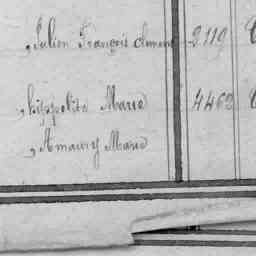 , Julien François Clement 2119
, hippolite Marie 4462
, Amaury Marie